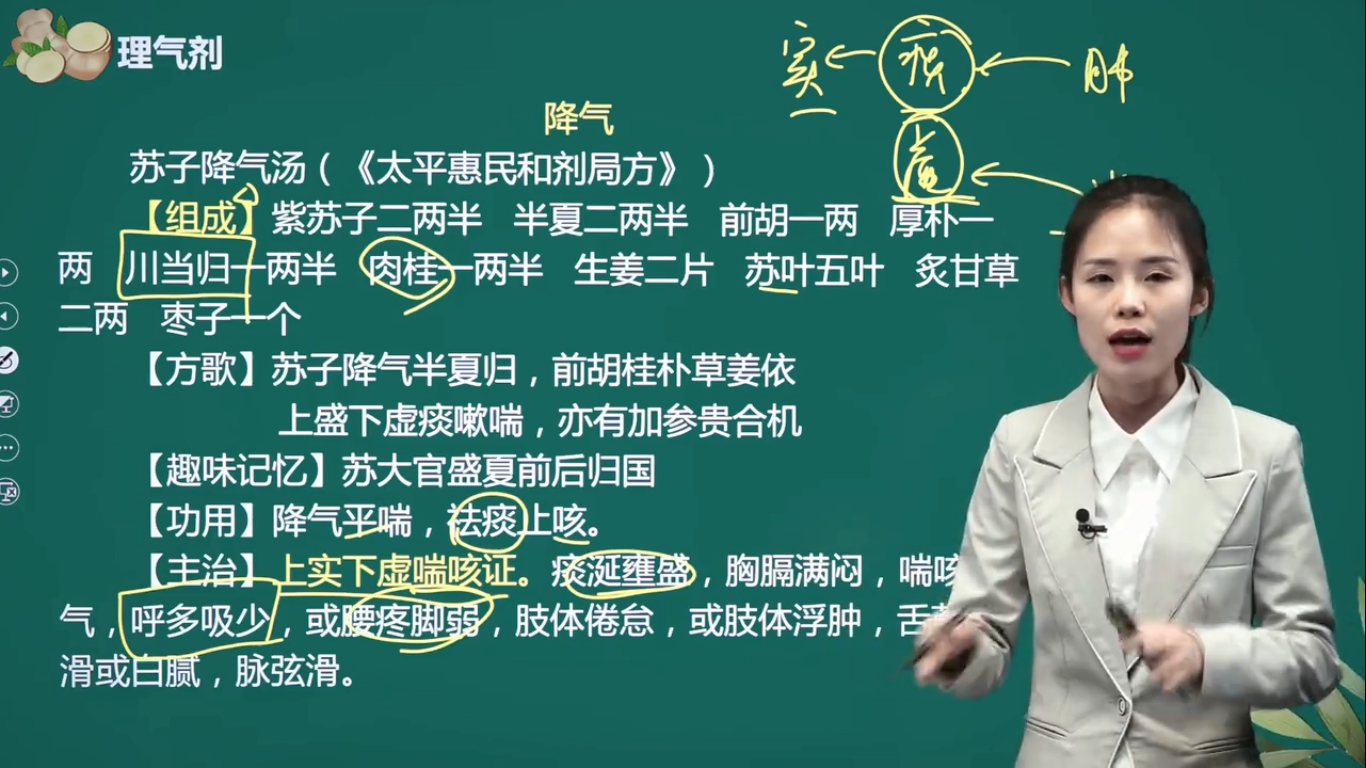 理气剂
实 痰 肺
虚
降气
苏子降气汤（《太平惠民和剂局方》）
【组成】紫苏子二两半 半夏二两半 前胡一两 厚朴一
两 川当归一两半 肉桂一两半 生姜二片 苏叶五叶 炙甘草
二两 枣子一个
【方歌】苏子降气半夏归，前胡桂朴草姜依
上盛下虚痰嗽喘，亦有加参贵合机
【趣味记忆】苏大官盛夏前后归国
【功用】降气平喘，祛痰上咳。
【主治】上实下虚喘咳证。痰涎壅盛，胸膈满闷，喘咳
气，呼多吸少，或腰疼脚弱，肢体倦怠，或肢体浮肿，舌
滑或白腻，脉弦滑。